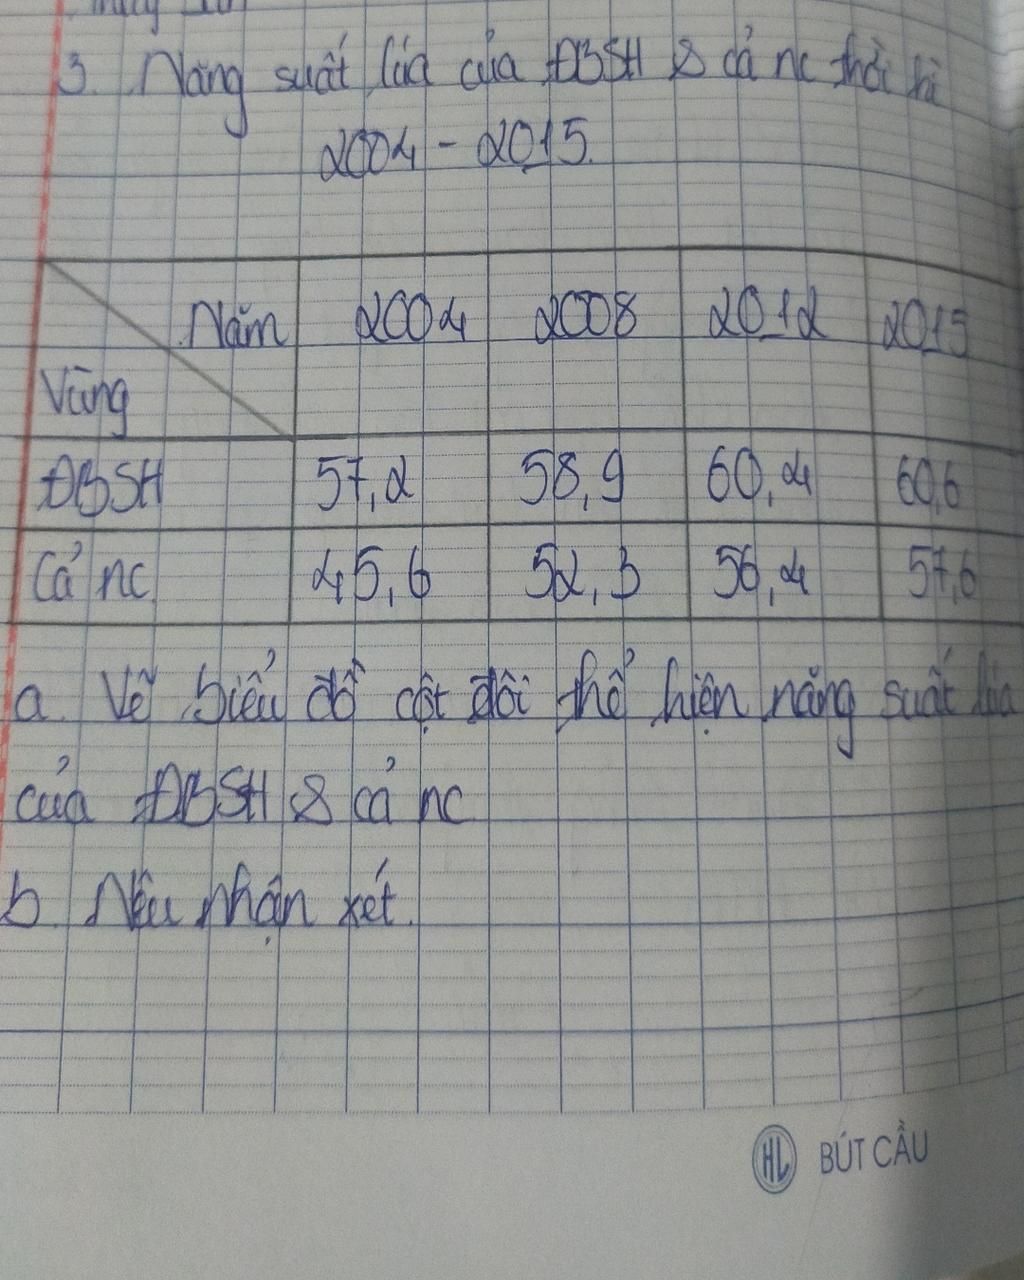 3. Năng suất lúa của ĐBSH & cả nc thời kì
2004 - 2015.
Năm 2004 2008 2012 2015
Vùng
ĐBSH 57,2 58,9 60,4 60,6
Cả nc 45,6 52,3 56,4 57,6
a. Vẽ biểu đồ cột đôi thể hiện năng suất lúa
của ĐBSH & cả nc
b. Nêu nhận xét.
HL BÚT CẦU